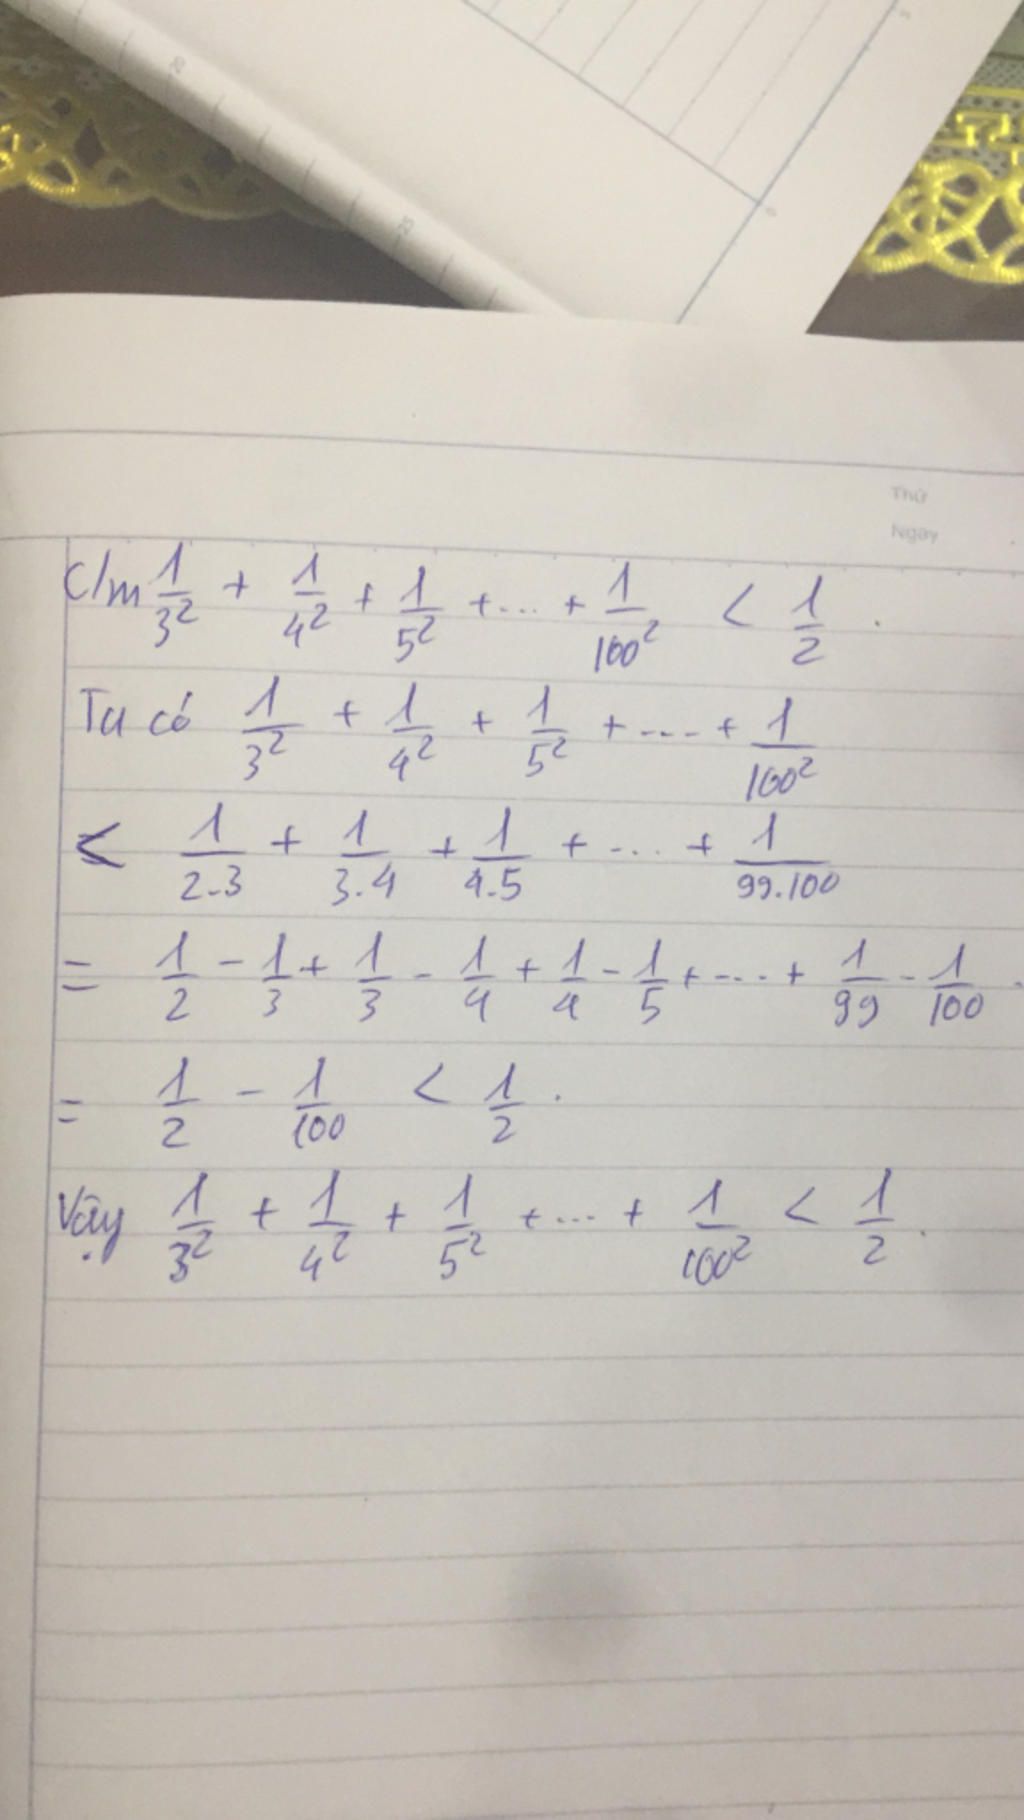 20
25
Thứ
Ngày
C/m 1/3² + 1/4² + 1/5² + ... + 1/100² < 1/2 .
Ta có 1/3² + 1/4² + 1/5² + .... + 1/100²
< 1/2.3 + 1/3.4 + 1/4.5 + ... + 1/99.100
= 1/2 - 1/3 + 1/3 - 1/4 + 1/4 - 1/5 + ... + 1/99 - 1/100 .
= 1/2 - 1/100 < 1/2 .
Vậy 1/3² + 1/4² + 1/5² + ... + 1/100² < 1/2 .